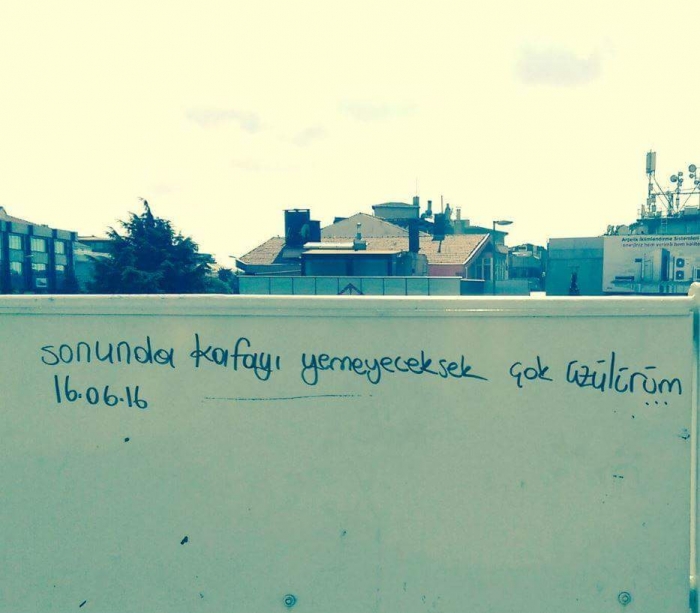 sonunda kafayı yemeyeceksek çok üzülürüm
...
16.06.16